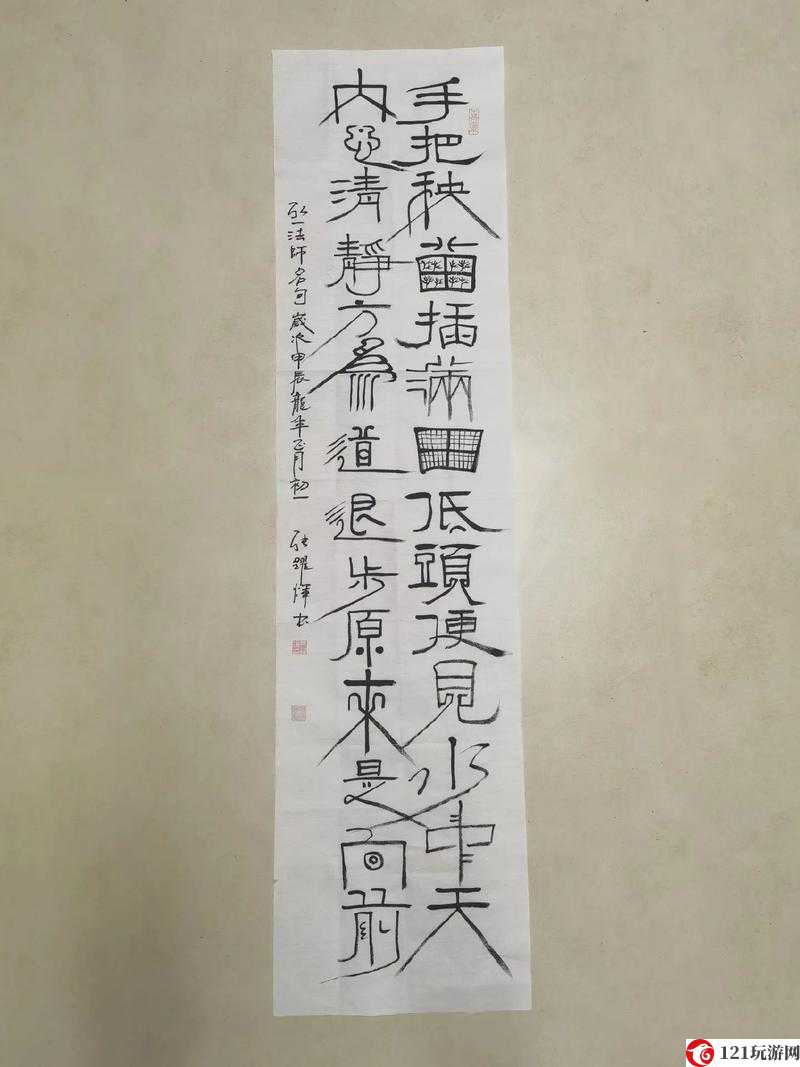 手把秧苗插滿田低頭便見水中天
內心清靜方爲道退步原來是向前
弘一法師名句 歲次甲辰龍年正月初一 躍輝书
121玩游网